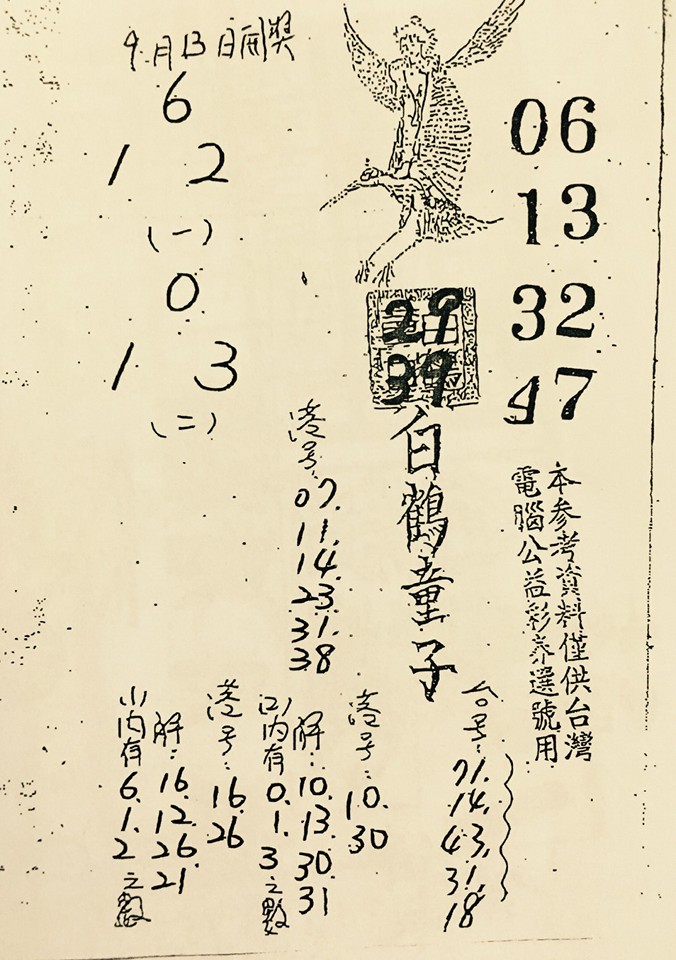 9月13日開獎
6
1 2
(一)
0
1 3
(二)
06
13
32
47
29
39
白鶴童子
本參考資料僅供台灣
電腦公益彩券選號用
港号:
07.
11.
14.
23.
31.
38
台号:
71.
14.
43.
31.
18
港号:
10.
30
解:
10.
13.
30.
31
(二)內有
0.
1.
3
之數
港号:
16
26
解:
16.
12.
26.
21
(一)內有
6.
1.
2
之數